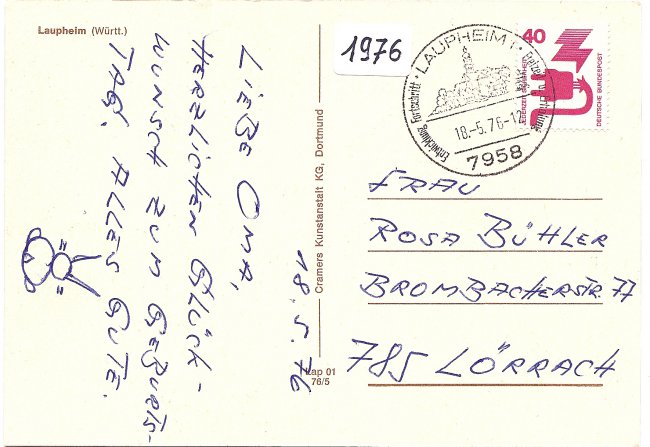 Laupheim (Württ.)
1976
LAUPHEIM 1
Entwicklung Fortschritt
18.-5.76-12
7958
40
JEDERZEIT SICHERHEIT
DEUTSCHE BUNDESPOST
LIEBE OMA,
HERZLICHEN GLÜCK-
WUNSCH ZUM GEBURTS-
TAG, ALLES GUTE.
18.5.76
Cramers Kunstanstalt KG, Dortmund
Lap 01
76/5
FRAU
ROSA BÜHLER
BROMBACHERSTR. 77
785 LÖRRACH